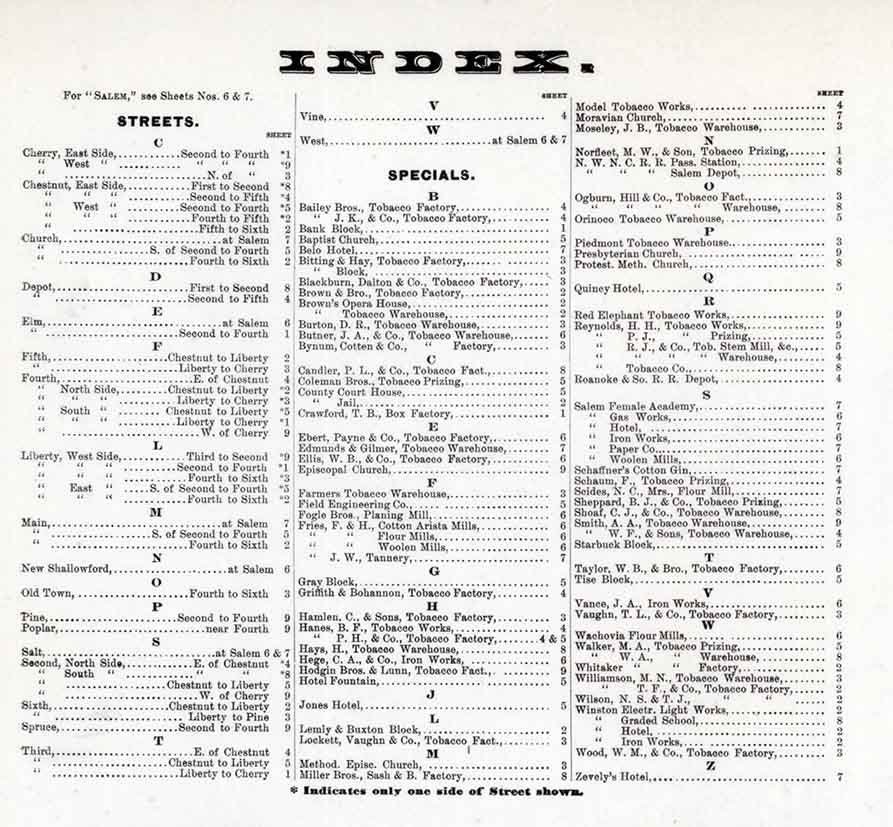 INDEX.
For "SALEM," see Sheets Nos. 6 & 7.
STREETS.
SHEET
C
Cherry, East Side, Second to Fourth *1
" West " " " " *9
" N. of " 3
Chestnut, East Side, First to Second *8
" " " Second to Fifth *4
" West " Second to Fourth *5
" " " Fourth to Fifth *2
" Fifth to Sixth 2
Church, at Salem 7
" S. of Second to Fourth 5
" Fourth to Sixth 2
D
Depot, First to Second 8
" Second to Fifth 4
E
Elm, at Salem 6
" Second to Fourth 1
F
Fifth, Chestnut to Liberty 2
" Liberty to Cherry 3
Fourth, E. of Chestnut 4
" North Side, Chestnut to Liberty *2
" " " Liberty to Cherry *3
" South " Chestnut to Liberty *5
" " " Liberty to Cherry *1
" W. of Cherry 9
L
Liberty, West Side, Third to Second *9
" " " Second to Fourth *1
" " " Fourth to Sixth *3
" East " S. of Second to Fourth *5
" " " Fourth to Sixth *2
M
Main, at Salem 7
" S. of Second to Fourth 5
" Fourth to Sixth 2
N
New Shallowford, at Salem 6
O
Old Town, Fourth to Sixth 3
P
Pine, Second to Fourth 9
Poplar, near Fourth 9
S
Salt, at Salem 6 & 7
Second, North Side, E. of Chestnut *4
" South " " " *8
" Chestnut to Liberty 5
" W. of Cherry 9
Sixth, Chestnut to Liberty 2
" Liberty to Pine 3
Spruce, Second to Fourth 9
T
Third, E. of Chestnut 4
" Chestnut to Liberty 5
" Liberty to Cherry 1
SHEET
V
Vine, 4
W
West, at Salem 6 & 7
SPECIALS.
B
Bailey Bros., Tobacco Factory, 4
" J. K., & Co., Tobacco Factory, 4
Bank Block, 1
Baptist Church, 5
Belo Hotel, 7
Bitting & Hay, Tobacco Factory, 3
" Block, 3
Blackburn, Dalton & Co., Tobacco Factory, 3
Brown & Bro., Tobacco Factory, 2
Brown's Opera House, 2
" Tobacco Warehouse, 2
Burton, D. R., Tobacco Warehouse, 3
Butner, J. A., & Co., Tobacco Warehouse, 6
Bynum, Cotten & Co., " Factory, 3
C
Candler, P. L., & Co., Tobacco Fact., 8
Coleman Bros., Tobacco Prizing, 5
County Court House, 5
" Jail, 2
Crawford, T. B., Box Factory, 1
E
Ebert, Payne & Co., Tobacco Factory, 6
Edmunds & Gilmer, Tobacco Warehouse, 7
Ellis, W. B., & Co., Tobacco Factory, 6
Episcopal Church, 9
F
Farmers Tobacco Warehouse, 3
Field Engineering Co., 5
Fogle Bros., Planing Mill, 6
Fries, F. & H., Cotton Arista Mills, 6
" " Flour Mills, 6
" " Woolen Mills, 6
" J. W., Tannery, 7
G
Gray Block, 5
Griffith & Bohannon, Tobacco Factory, 4
H
Hamlen. C., & Sons, Tobacco Factory, 3
Hanes, B. F., Tobacco Works, 4
" P. H., & Co., Tobacco Factory, 4 & 5
Hays, H., Tobacco Warehouse, 8
Hege, C. A., & Co., Iron Works, 6
Hodgin Bros. & Lunn, Tobacco Fact., 9
Hotel Fountain, 5
J
Jones Hotel, 5
L
Lemly & Buxton Block, 2
Lockett, Vaughn & Co., Tobacco Fact., 3
M
Method. Episc. Church, 3
Miller Bros., Sash & B. Factory, 8
SHEET
Model Tobacco Works, 4
Moravian Church, 7
Moseley, J. B., Tobacco Warehouse, 3
N
Norfleet, M. W., & Son, Tobacco Prizing, 1
N. W. N. C. R. R. Pass. Station, 4
" " " Salem Depot, 8
O
Ogburn, Hill & Co., Tobacco Fact., 3
" " " " Warehouse, 8
Orinoco Tobacco Warehouse, 5
P
Piedmont Tobacco Warehouse. 3
Presbyterian Church, 9
Protest. Meth. Church, 8
Q
Quincy Hotel, 5
R
Red Elephant Tobacco Works, 9
Reynolds, H. H., Tobacco Works, 9
" P. J., " Prizing, 5
" R. J., & Co., Tob. Stem Mill, &c., 5
" " " " Warehouse, 4
" Tobacco Co., 8
Roanoke & So. R. R. Depot, 4
S
Salem Female Academy, 7
" Gas Works, 6
" Hotel, 7
" Iron Works, 6
" Paper Co., 7
" Woolen Mills, 6
Schaffner's Cotton Gin, 7
Schaum, F., Tobacco Prizing, 4
Seides, N. C., Mrs., Flour Mill, 7
Sheppard, B. J., & Co., Tobacco Prizing, 5
Shoaf, C. J., & Co., Tobacco Warehouse, 8
Smith, A. A., Tobacco Warehouse, 9
" W. F., & Sons, Tobacco Warehouse, 4
Starbuck Block, 5
T
Taylor, W. B., & Bro., Tobacco Factory, 6
Tise Block, 5
V
Vance, J. A., Iron Works, 6
Vaughn, T. L., & Co., Tobacco Factory, 3
W
Wachovia Flour Mills, 6
Walker, M. A., Tobacco Prizing, 5
" W. A., " Warehouse, 8
Whitaker " " Factory, 2
Williamson, M. N., Tobacco Warehouse, 3
" T. F., & Co., Tobacco Factory, 2
Wilson, N. S. & T. J., " " 2
Winston Electr. Light Works, 2
" Graded School, 8
" Hotel, 2
" Iron Works, 2
Wood, W. M., & Co., Tobacco Factory, 3
Z
Zevely's Hotel, 7
* Indicates only one side of Street shown.